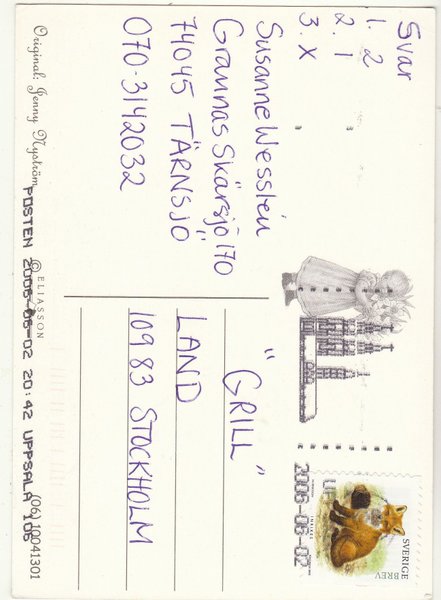 Svar
1. 2
2. 1
3. X
Susanne Wesslén
Grannäs Skärsjö 170
74045 TÄRNSJÖ
070-3142032
"GRILL"
LAND
109 83 STOCKHOLM
SVERIGE
BREV
2006-06-02
Original: Jenny Nyström
© ELIASSON
POSTEN 2006-06-02 20:42 UPPSALA 106
(06) 10041301